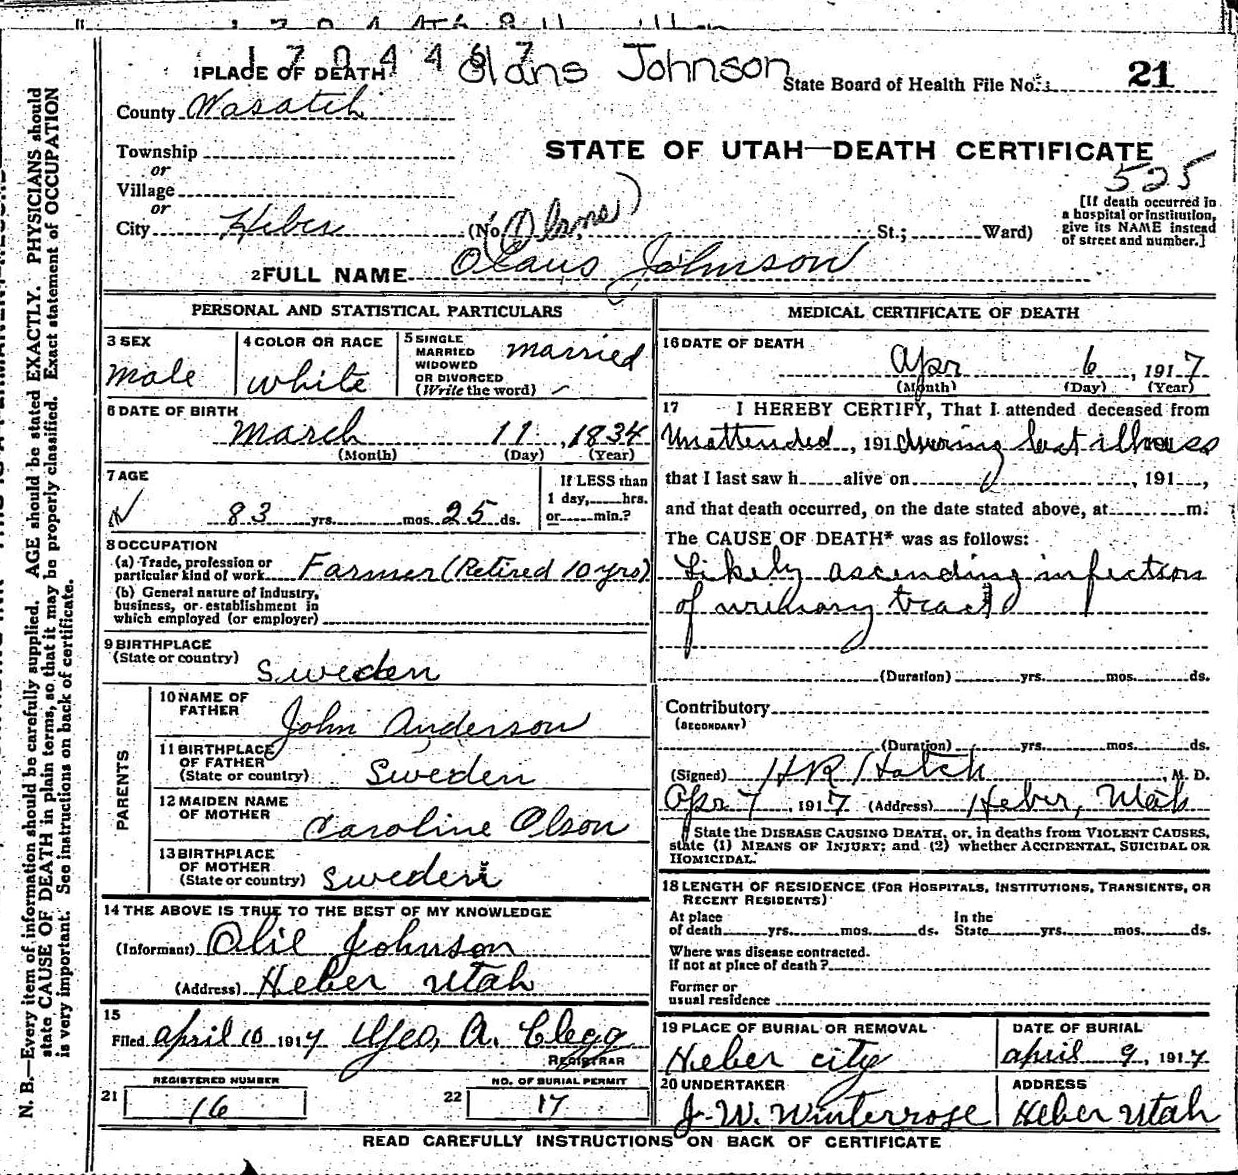 1704467 Olans Johnson
1 PLACE OF DEATH
State Board of Health File No. 21
County Wasatch
Township
or
Village
or
City Heber (No. St.; Ward)
STATE OF UTAH—DEATH CERTIFICATE
525
[If death occurred in
a hospital or institution,
give its NAME instead
of street and number.]
2 FULL NAME Olaus Johnson
PERSONAL AND STATISTICAL PARTICULARS
3 SEX
male
4 COLOR OR RACE
white
5 SINGLE
MARRIED
WIDOWED
OR DIVORCED
(Write the word)
married
6 DATE OF BIRTH
March 11, 1834
(Month) (Day) (Year)
7 AGE
83 yrs. mos. 25 ds.
If LESS than
1 day, hrs.
or min.?
8 OCCUPATION
(a) Trade, profession or
particular kind of work Farmer (Retired 10 yrs)
(b) General nature of industry,
business, or establishment in
which employed (or employer)
9 BIRTHPLACE
(State or country) Sweden
PARENTS
10 NAME OF
FATHER John Anderson
11 BIRTHPLACE
OF FATHER
(State or country) Sweden
12 MAIDEN NAME
OF MOTHER Caroline Olson
13 BIRTHPLACE
OF MOTHER
(State or country) Sweden
14 THE ABOVE IS TRUE TO THE BEST OF MY KNOWLEDGE
(Informant) Olie Johnson
(Address) Heber Utah
15
Filed April 10 1917 Geo. A. Clegg
REGISTRAR
REGISTERED NUMBER
21 16
NO. OF BURIAL PERMIT
22 17
MEDICAL CERTIFICATE OF DEATH
16 DATE OF DEATH
Apr 6, 1917
(Month) (Day) (Year)
17 I HEREBY CERTIFY, That I attended deceased from
Unattended, 191 during last illness
that I last saw h alive on , 191 ,
and that death occurred, on the date stated above, at m.
The CAUSE OF DEATH* was as follows:
Likely ascending infection
of urinary tract
(Duration) yrs. mos. ds.
Contributory
(SECONDARY)
(Duration) yrs. mos. ds.
(Signed) H R Hatch, M. D.
Apr 7, 1917 (Address) Heber, Utah
State the DISEASE CAUSING DEATH, or, in deaths from VIOLENT CAUSES,
state (1) MEANS OF INJURY; and (2) whether ACCIDENTAL, SUICIDAL OR
HOMICIDAL.
18 LENGTH OF RESIDENCE (FOR HOSPITALS, INSTITUTIONS, TRANSIENTS, OR
RECENT RESIDENTS)
At place
of death yrs. mos. ds.
In the
State yrs. mos. ds.
Where was disease contracted.
If not at place of death?
Former or
usual residence
19 PLACE OF BURIAL OR REMOVAL
Heber city
DATE OF BURIAL
April 9, 1917
20 UNDERTAKER
J. W. Winterrose
ADDRESS
Heber Utah
READ CAREFULLY INSTRUCTIONS ON BACK OF CERTIFICATE
N. B.—Every item of information should be carefully supplied. AGE should be stated EXACTLY. PHYSICIANS should
state CAUSE OF DEATH in plain terms, so that it may be properly classified. Exact statement of OCCUPATION
is very important. See instructions on back of certificate.